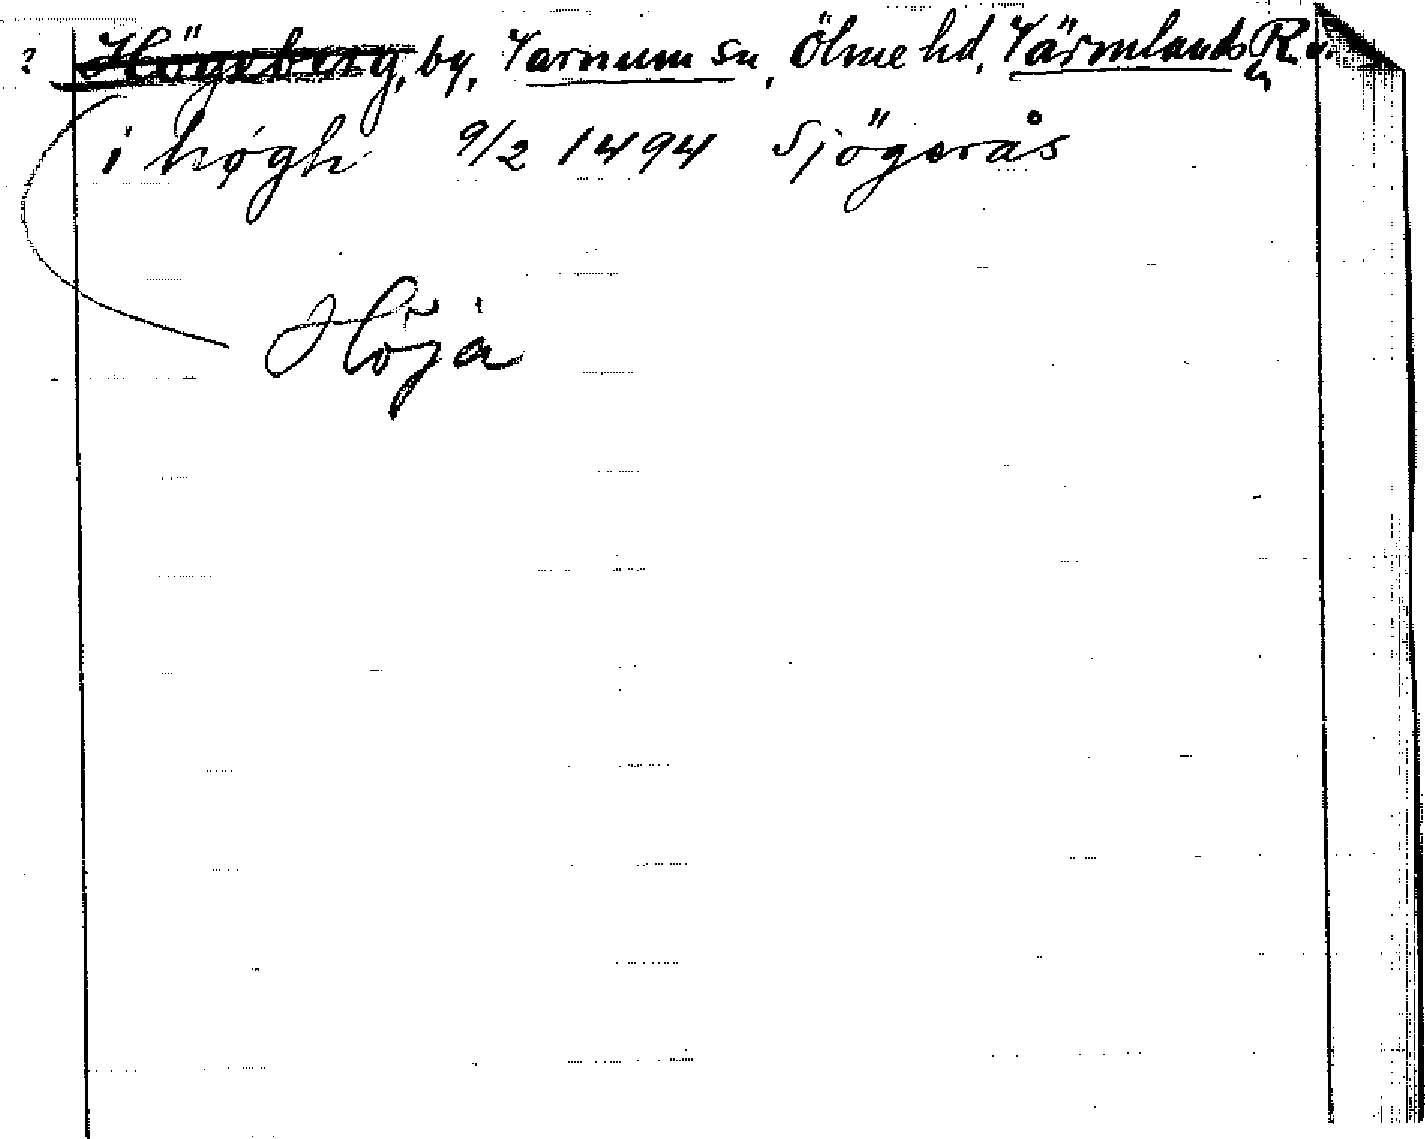 ? Högeberg, by, Varnum sn, Ölme hd, Värmlands
i høgh 9/2 1494 Sjögerås
Höja